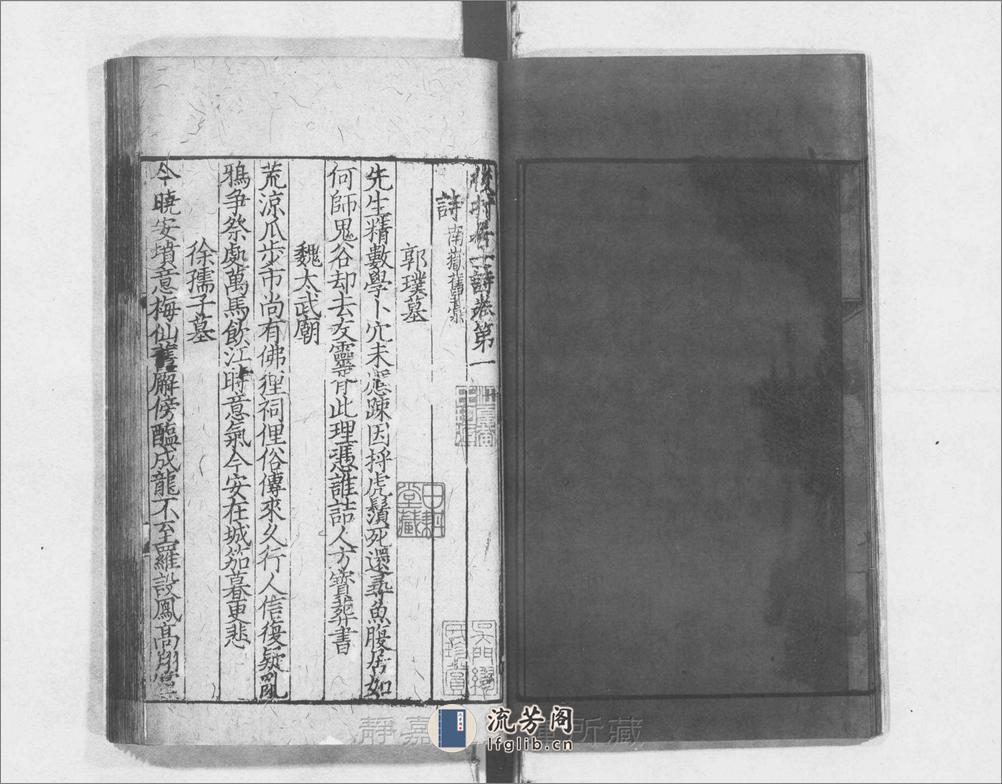 後村居士詩卷第一
詩南嶽舊藁
郭璞墓
先生精數學卜穴未應踈因捋虎鬚死還尋魚腹居如
何師鬼谷却去友靈胥此理憑誰詰人方寳葬書
魏太武廟
荒涼瓜步市尚有佛狸祠俚俗傳來久行人信復疑亂
鴉爭祭處萬馬飲江時意氣今安在城笳暮更悲
徐孺子墓
今曉安墳意梅仙舊廨傍醢成龍不至羅設鳳高翔
靜嘉 所藏
流芳阁
lfglib.cn